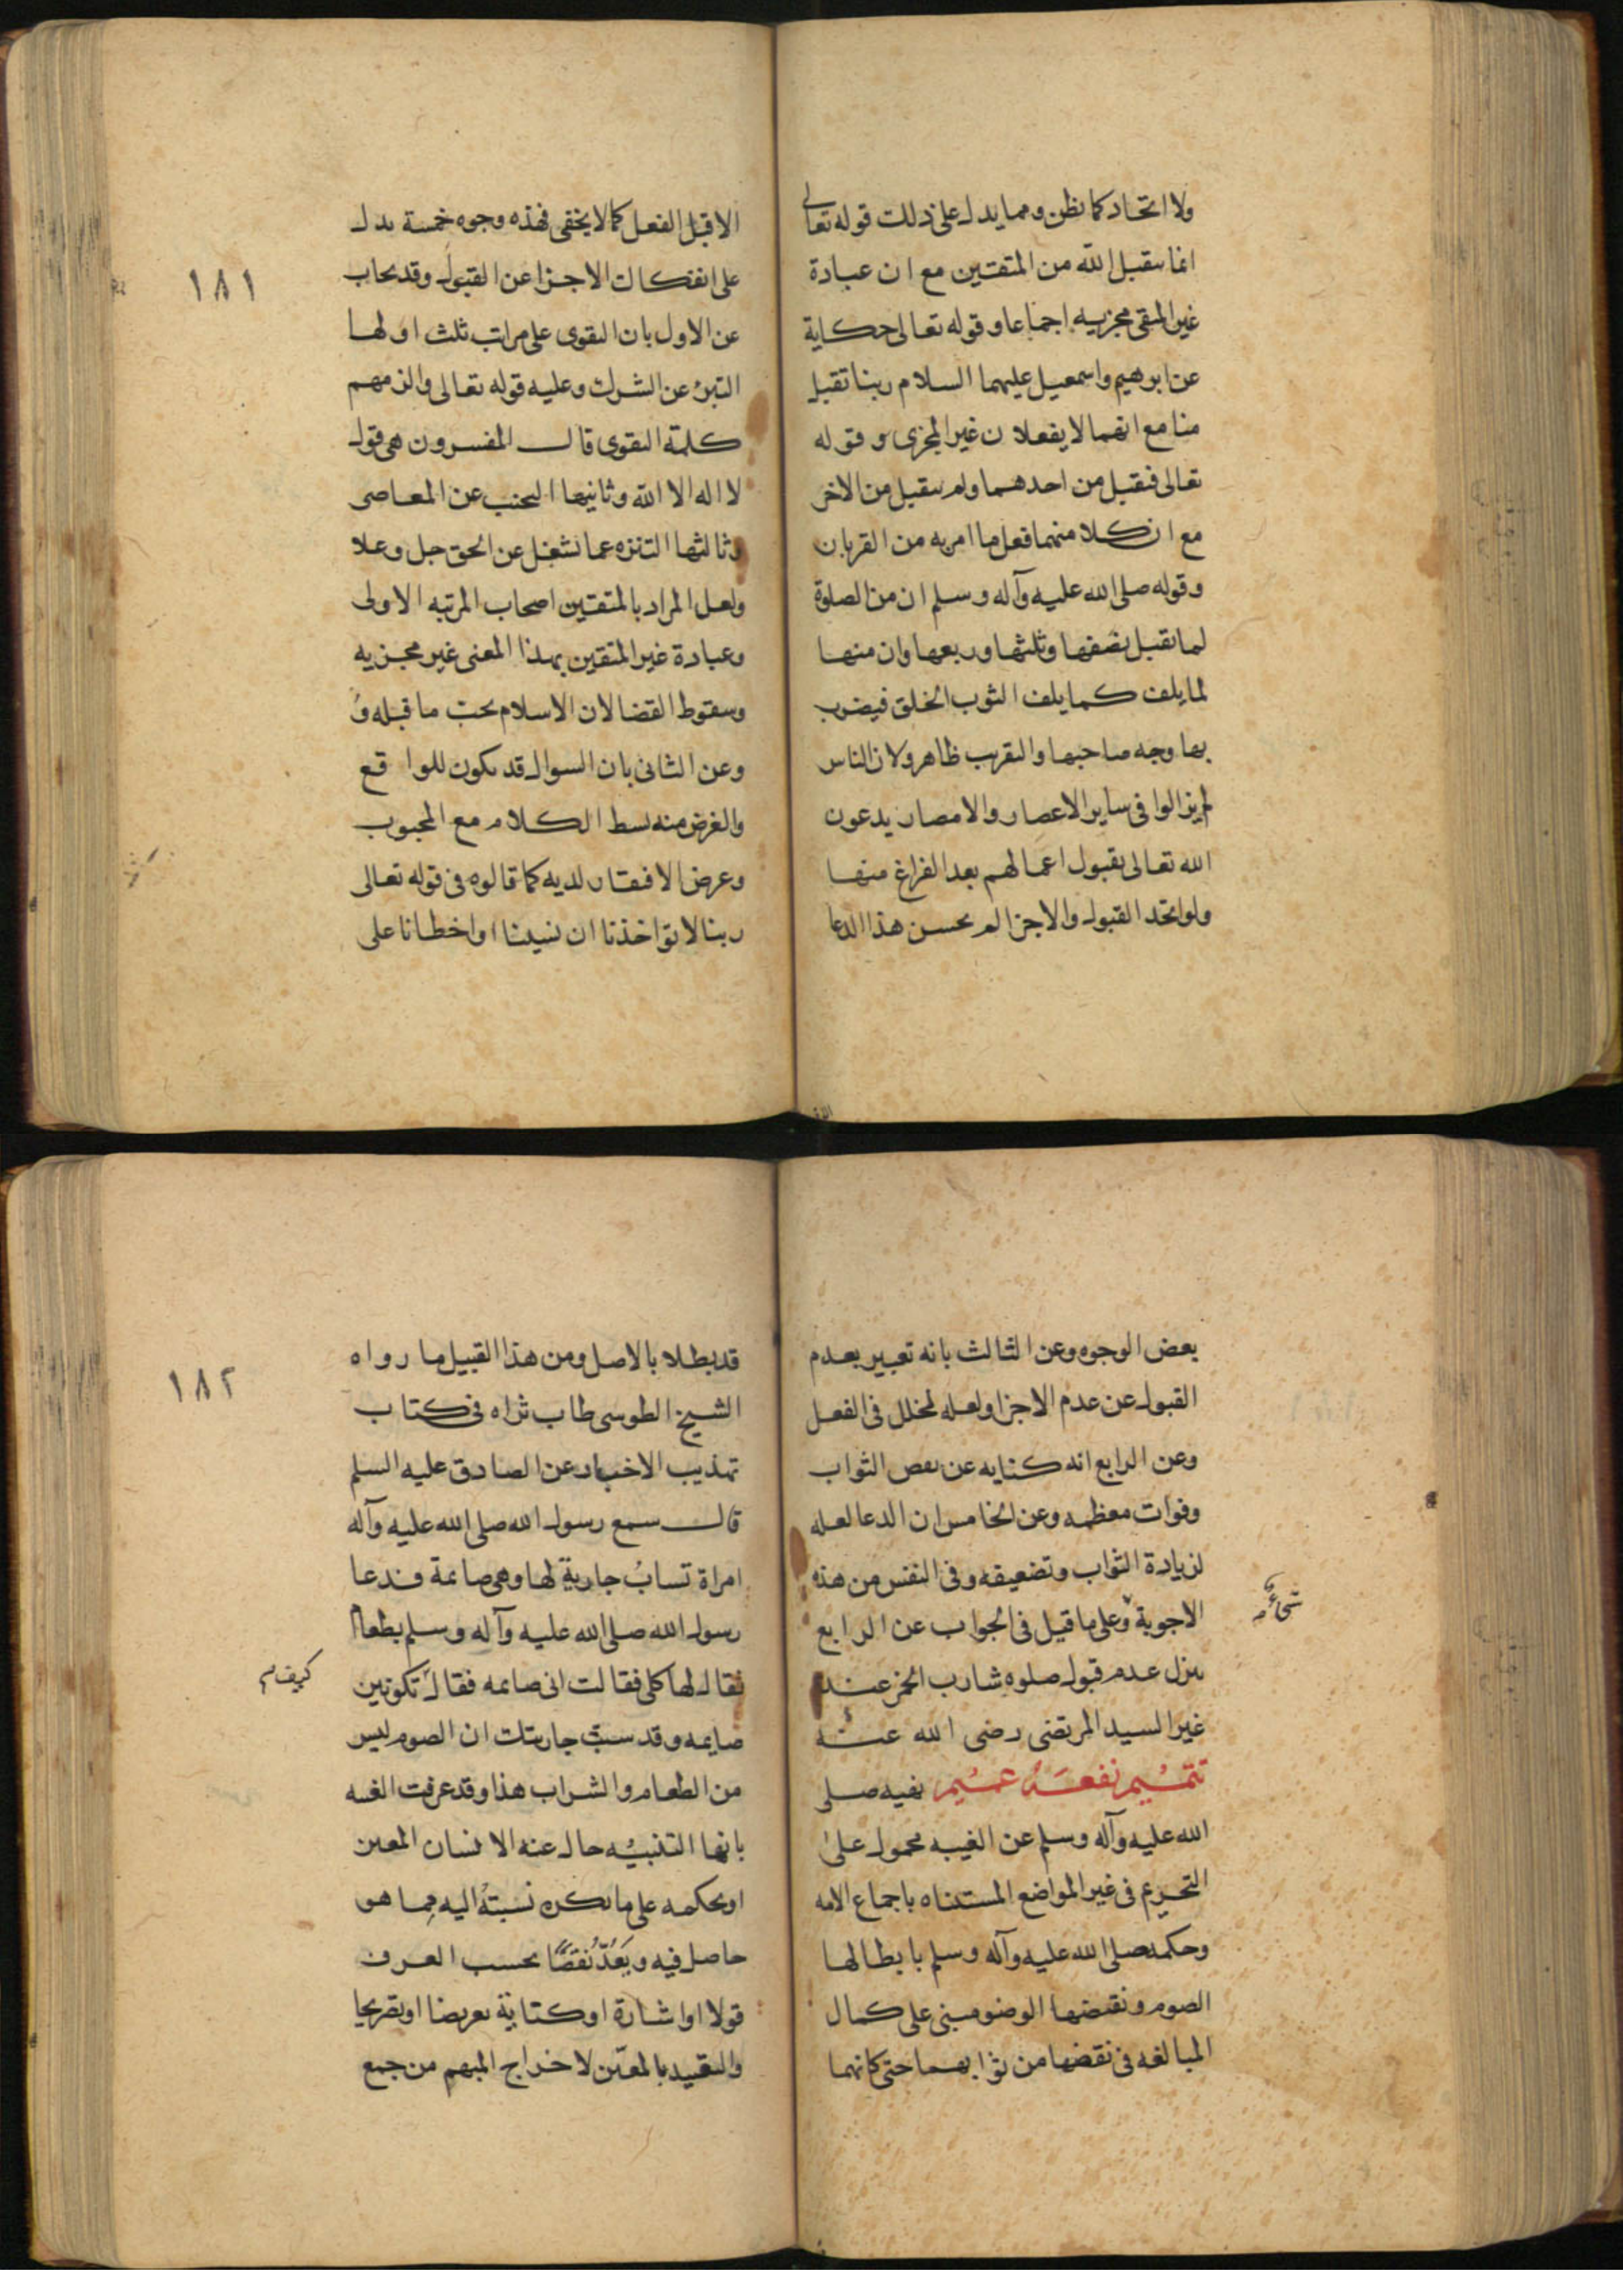 ولا اتحاد كما يظن ومما يدل على ذلك قوله تعالى
انما يتقبل الله من المتقين مع ان عبادة
غير المتقى مجزيه اجماعا وقوله تعالى حكاية
عن ابرهيم واسمعيل عليهما السلام ربنا تقبل
منا مع انهما لا يفعلان غير المجزى وقوله
تعالى فتقبل من احدهما ولم يتقبل من الاخر
مع ان كلا منهما فعل ما امر به من القربان
وقوله صلى الله عليه وآله وسلم ان من الصلوة
لما يقبل نصفها وثلثها وربعها وان منها
لما يلف كما يلف الثوب الخلق فيضرب
بها وجه صاحبها والتقريب ظاهر ولان الناس
لم يزالوا فى ساير الاعصار والامصار يدعون
الله تعالى بقبول اعمالهم بعد الفراغ منها
ولو اتحد القبول والاجزا لم يحسن هذا الدعا
الا قبل الفعل كما لا يخفى فهذه وجوه خمسة يدل
١٨١
على انفكاك الاجزا عن القبول وقد يجاب
عن الاول بان التقوى على مراتب ثلث اولها
التبرؤ عن الشرك وعليه قوله تعالى والزمهم
كلمة التقوى قال المفسرون هى قول
لا اله الا الله وثانيها التجنب عن المعاصى
وثالثها التنزه عما يشغل عن الحق جل وعلا
ولعل المراد بالمتقين اصحاب المرتبه الاولى
وعبادة غير المتقين بهذا المعنى غير مجزيه
وسقوط القضا لان الاسلام يجب ما قبله
وعن الثانى بان السوال قد يكون للواقع
والغرض منه بسط الكلام مع المحبوب
وعرض الافتقار لديه كما قالوه فى قوله تعالى
ربنا لا تواخذنا ان نسينا او اخطانا على
بعض الوجوه وعن الثالث بانه تعبير بعدم
القبول عن عدم الاجزا ولعله لخلل فى الفعل
وعن الرابع انه كنايه عن نقص الثواب
وفوات معظمه وعن الخامس ان الدعا لعله
لزيادة الثواب وتضعيفه وفى النفس من هذه
شىء
الاجوبة وعلى ما قيل فى الجواب عن الرابع
ينزل عدم قبول صلوه شارب الخمر عند
غير السيد المرتضى رضى الله عنه
تتميم نفعه عميم نهيه صلى
الله عليه وآله وسلم عن الغيبه محمول على
التحريم فى غير المواضع المستثناه باجماع الامه
وحكمه صلى الله عليه وآله وسلم بابطالها
الصوم ونقضها الوضو مبنى على كمال
المبالغه فى نقضها من ثوابهما حتى كانهما
قد بطلا بالاصل ومن هذا القبيل ما رواه
١٨٢
الشيخ الطوسى طاب ثراه فى كتاب
تهذيب الاخبار عن الصادق عليه السلم
قال سمع رسول الله صلى الله عليه وآله
امراة تساب جارية لها وهى صائمة فدعا
رسول الله صلى الله عليه وآله وسلم بطعام
فقال لها كلى فقالت انى صائمه فقال تكونين
كيف
صايمه وقد سببت جاريتك ان الصوم ليس
من الطعام والشراب هذا وقد عرفت الغيبه
بانها التنبيه حال غيبة الانسان المعين
او بحكمه على ما يكره نسبته اليه مما هو
حاصل فيه ويعد نقصا بحسب العرف
قولا او اشارة او كتابية تعريضا او تصريحا
والتقييد بالمعين لاخراج المبهم من جمع